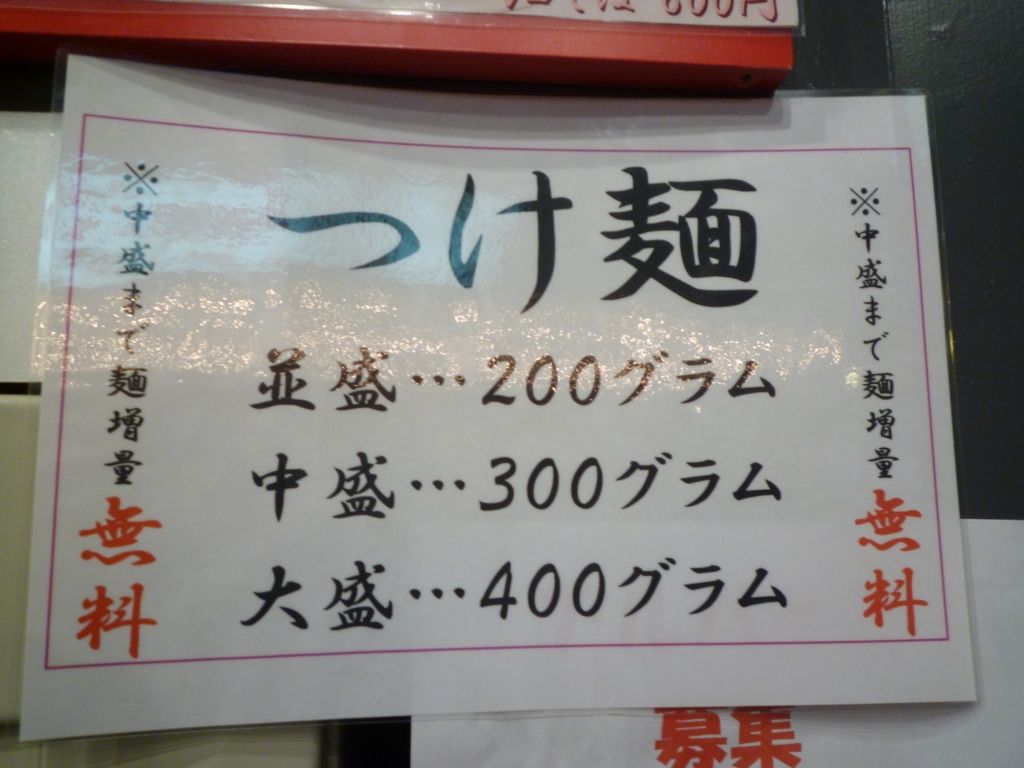 600円
つけ麺
並盛…200グラム
中盛…300グラム
大盛…400グラム
※中盛まで麺増量無料
※中盛まで麺増量無料
募集